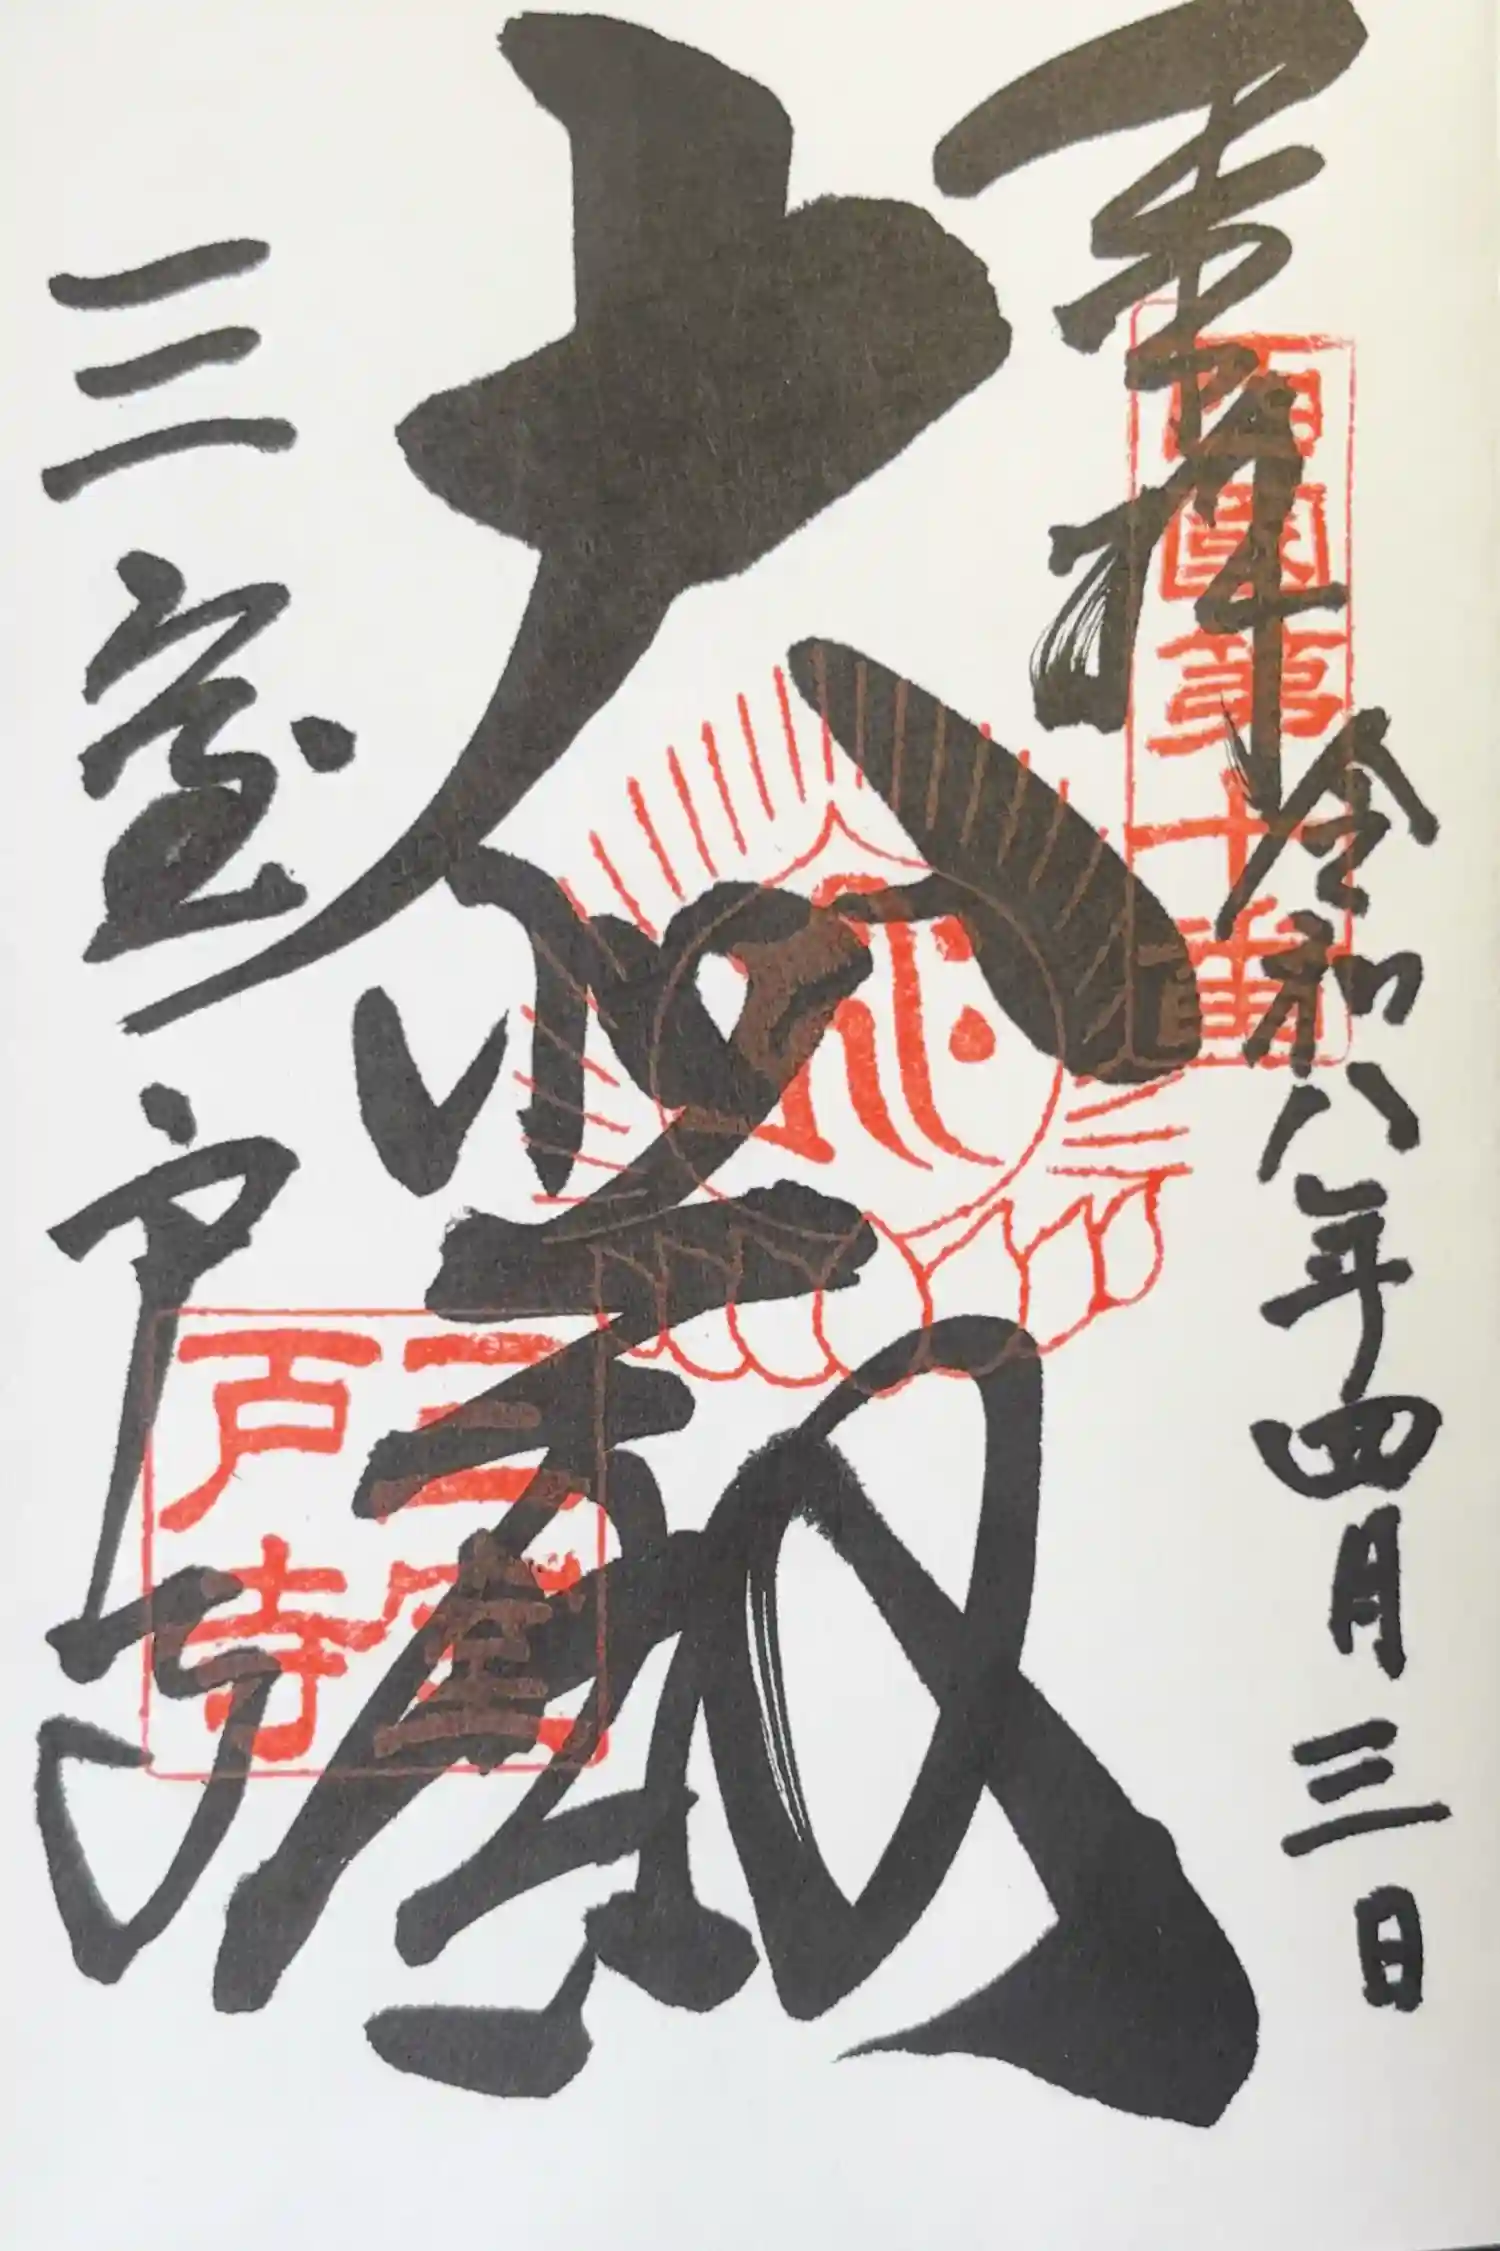 奉拝
西國第十番
令和八年四月三日
大悲殿
三室戸寺
三室
戸寺